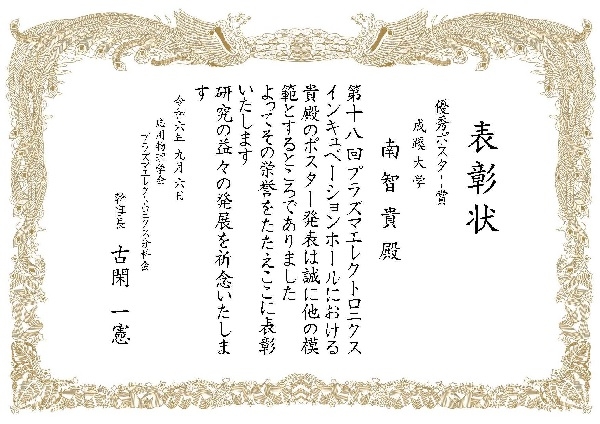 表彰状
優秀ポスター賞
成蹊大学
南智貴殿
第十八回プラズマエレクトロニクス
インキュベーションホールにおける
貴殿のポスター発表は誠に他の模
範とするところでありました
よってその栄誉をたたえここに表彰
いたします
研究の益々の発展を祈念いたしま
す
令和六年九月六日
応用物理学会
プラズマエレクトロニクス分科会
幹事長 古閑一憲